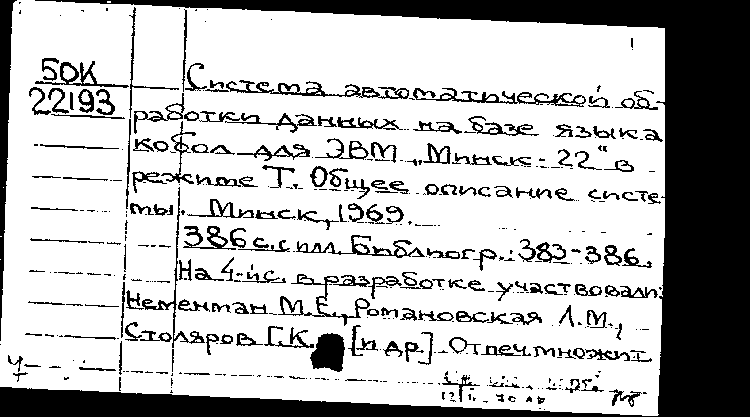 1
БОК
22193
Система автоматической об-
работки данных на базе языка
кобол для ЭВМ „Минск-22“ в
режиме Т. Общее описание систе-
мы. Минск, 1969.
386 с. с илл. Библиогр.: 383-386.
На 4-й с. в разработке участвовали:
Неменман М.Е., Романовская Л.М.,
Столяров Г.К. [и др.]. Отпеч. множит.